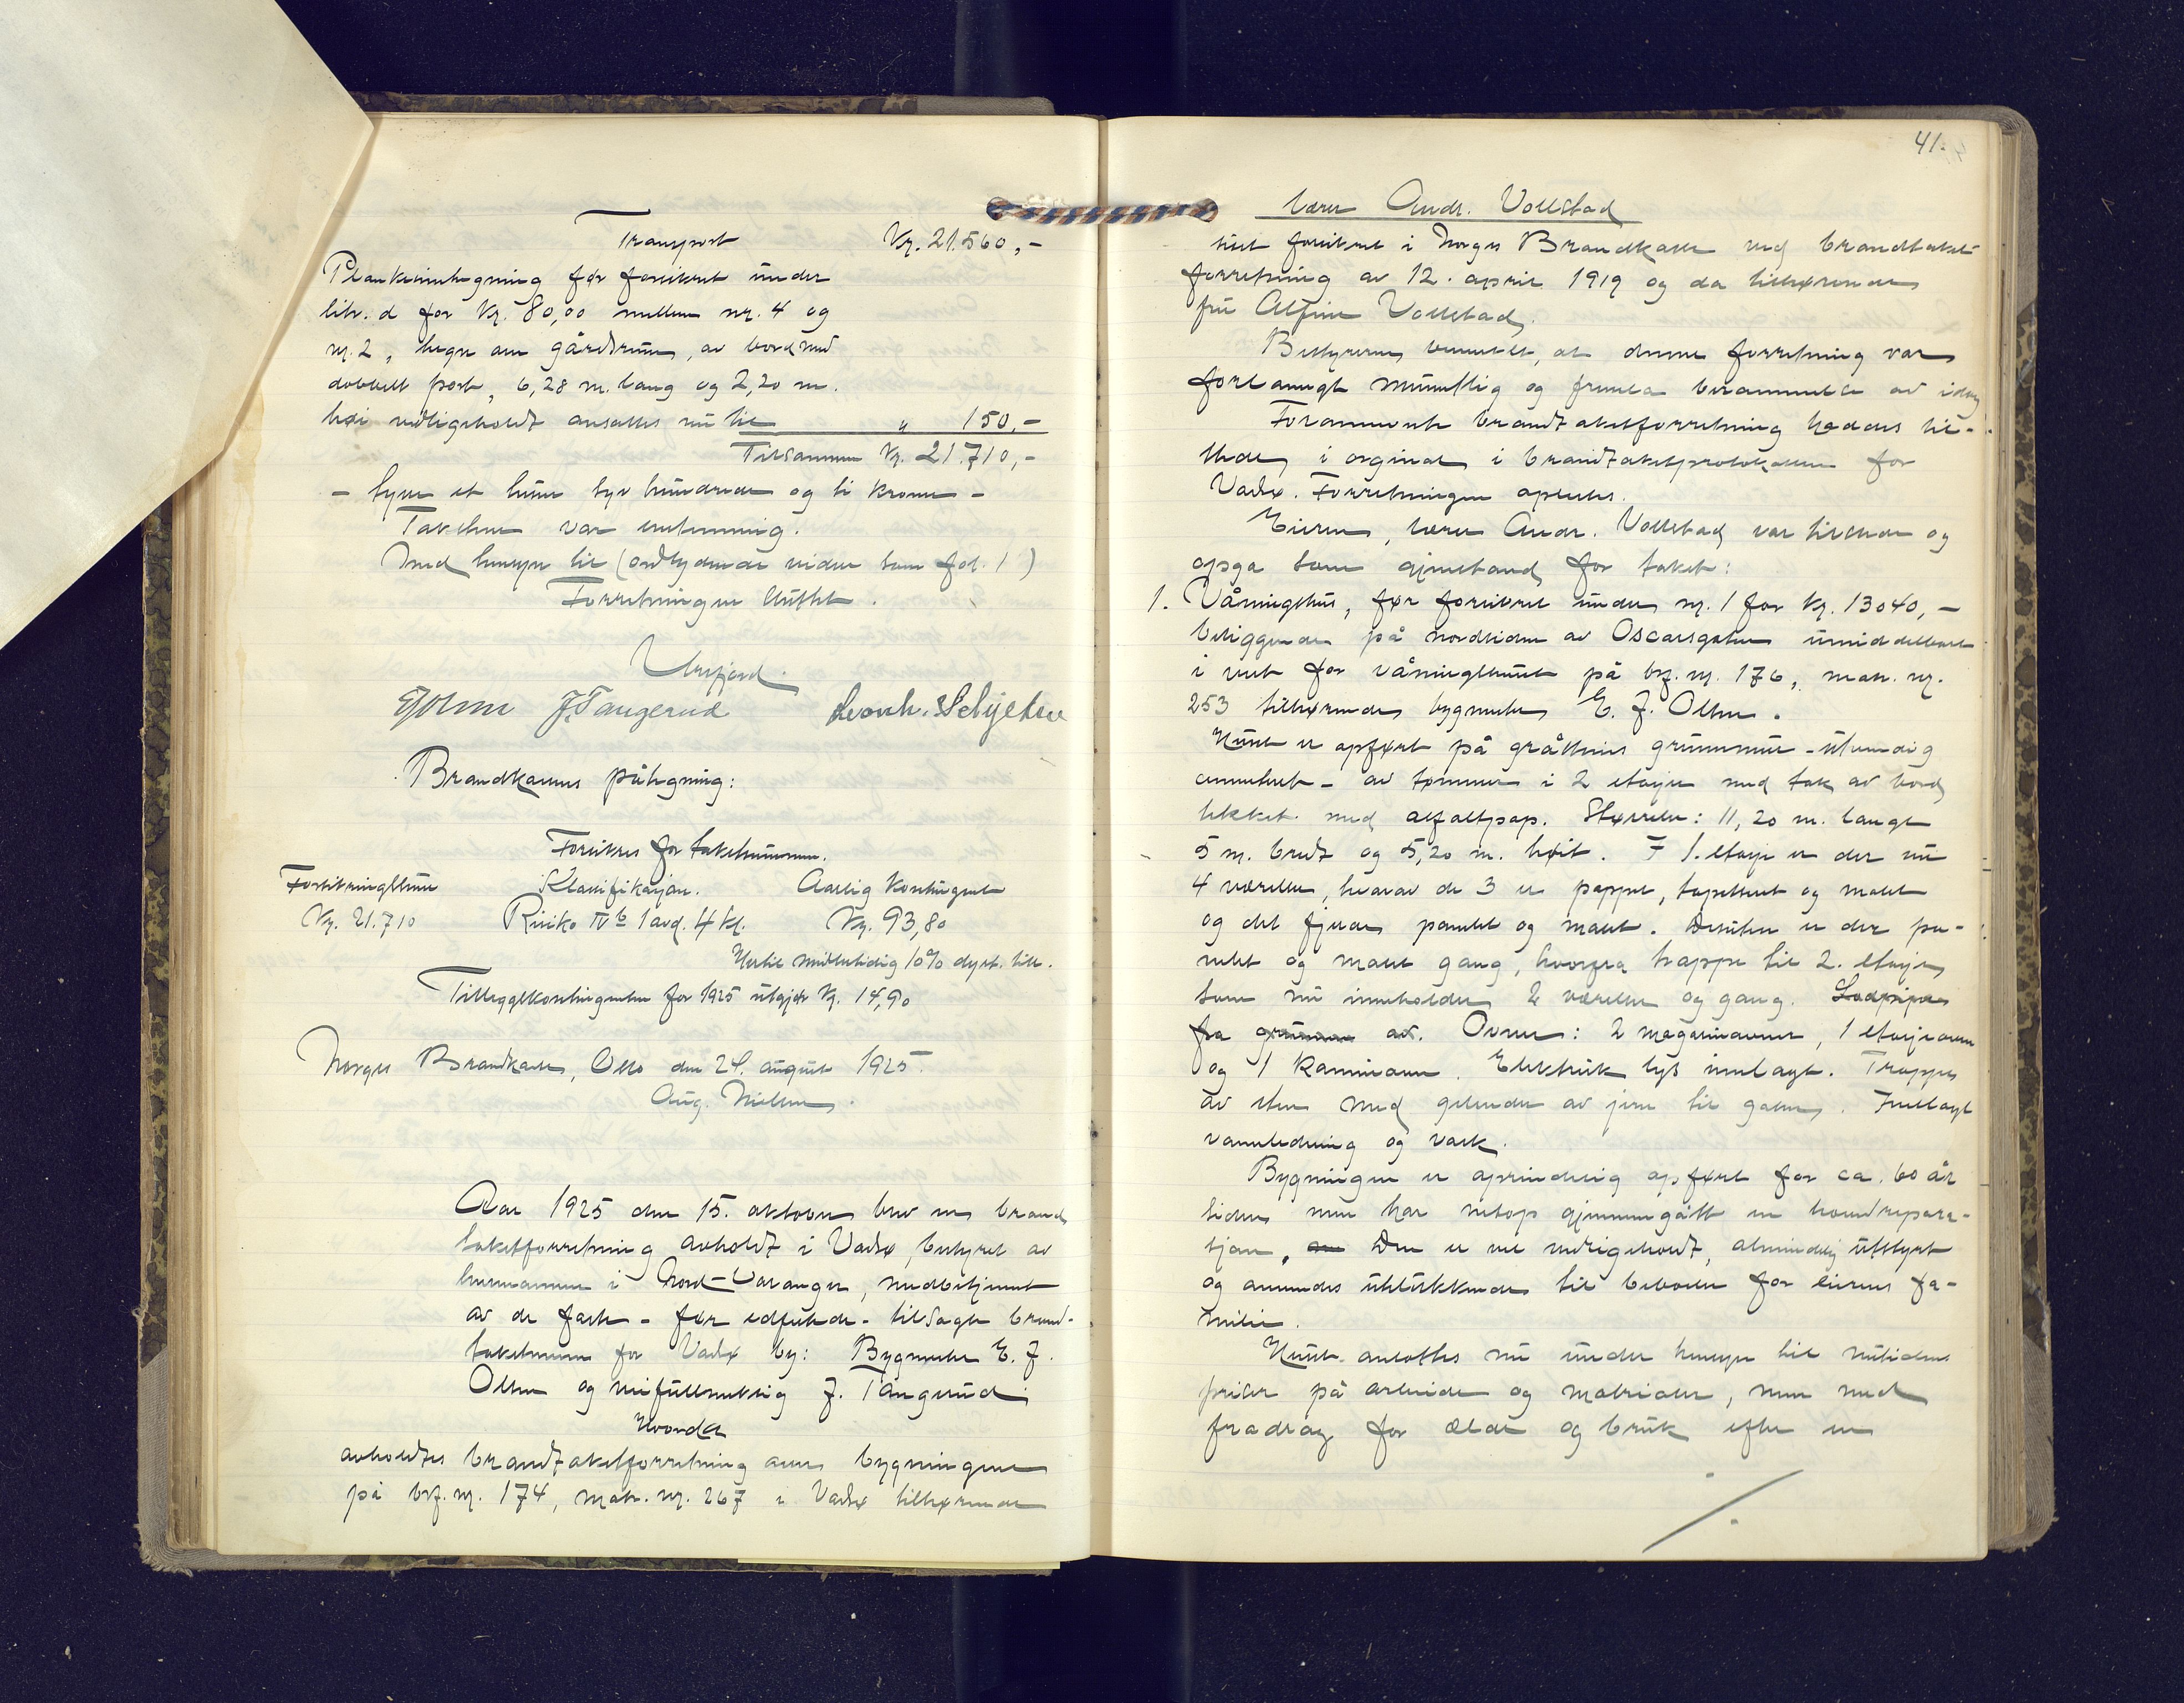 Transport Kr. 21.560,-
Plankeinhegning før forsikret under
litr. d for Kr. 80,00 mellem nr. 4 og
nr. 2, hegn om gårdsrum, av bord med
dobbelt port, 6,28 m. lang og 2,20 m.
høi vedligeholdt ansattes nu til " 150,-
Tilsammen Kr. 21.710,-
- tyve et tusen syv hundrede og ti kroner -
Taksten var enstemmig.
Med hensyn til (ordlydende videre som fol. 1)
Forretningen sluttet.
EJOlsen J. Tangerud Leonh. Schjelderu
Brandkassens påtegning:
Forsikres for takstsummen.
Forsikringssum Klassifikasjon. Aarlig Kontingent
Kr. 21.710 Risiko IVb 1 avd. 4 kl. Kr. 93,80
Hertil midlertidig 10% dyrt. till.
Tilleggskontingenten for 1925 utgjør Kr. 14,90
Norges Brandkasse, Oslo den 24. august 1925.
Aug. Nielsen.
Aar 1925 den 15. oktober blev en brand
takstforretning avholdt i Vadsø, bestyret av
lensmannen i Nord-Varanger, medbetjent
av de faste - før edfestede - tilsagte brand-
takstmenn for Vadsø by: Bygmester E. J.
Olsen og hr. fullmektig J. Tangerud
Hvorda
avholdtes brandtakstforretning over bygningene
på brf. nr. 174, matr. nr. 267 i Vadsø tilhørende
41.
lærer Andr. Vollstad
sist forsikret i Norges Brandkasse ved brandtakst-
forretning av 12. april 1919 og da tilhørende
fru Alfine Vollstad.
Bestyreren bemerket, at denne forretning var
forlangt muntlig og fremla berammelse av idag
Forannevnte brandtakstforretning haddes til-
stede i orginal i brandtakstprotokollen for
Vadsø. Forretningen oplestes.
Eieren, lærer Andr. Vollstad var tilstede og
opga som gjenstand for takst:
1. Våningshus, før forsikret under nr. 1 for Kr. 13040,-
beliggende på nordsiden av Oscarsgaten umiddelbart
i vest for våningshuset på brf. nr. 176, matr. nr.
253 tilhørende bygmester E. J. Olsen.
Huset er opført på gråstens grunnmur - utvendig
cementert - av tømmer i 2 etasjer med tak av bord
tekket med asfaltpap. Størrelse: 11,20 m. langt
5 m. bredt og 5,20 m. høit. I 1. etasje er der nu
4 værelser, hvorav de 3 er pappet, tapetsert og malet
og det fjerde panelet og malet. Desuten er der pa-
nelet og malet gang, hvorfra trappe til 2. etasje,
som nu inneholder 2 værelser og gang. Lodpipe
fra grunnen av. Ovner: 2 magasinovner, 1 etasjeovn
og 1 Kaminovn. Elektrisk lys innlagt. Trappe
av sten med gelender av jern til gaten. Innlagt
vannledning og vask.
Bygningen er oprindelig opført for ca. 60 år
siden men har netop gjennemgått en hovedrepara-
sjon. Den er vel vedligeholdt, almindelig utstyrt
og anvendes utelukkende til beboelse for eierens fa-
milie.
Huset ansattes nu under hensyn til nutidens
priser på arbeide og matrialer, men med
fradrag for ælde og bruk efter en
./.